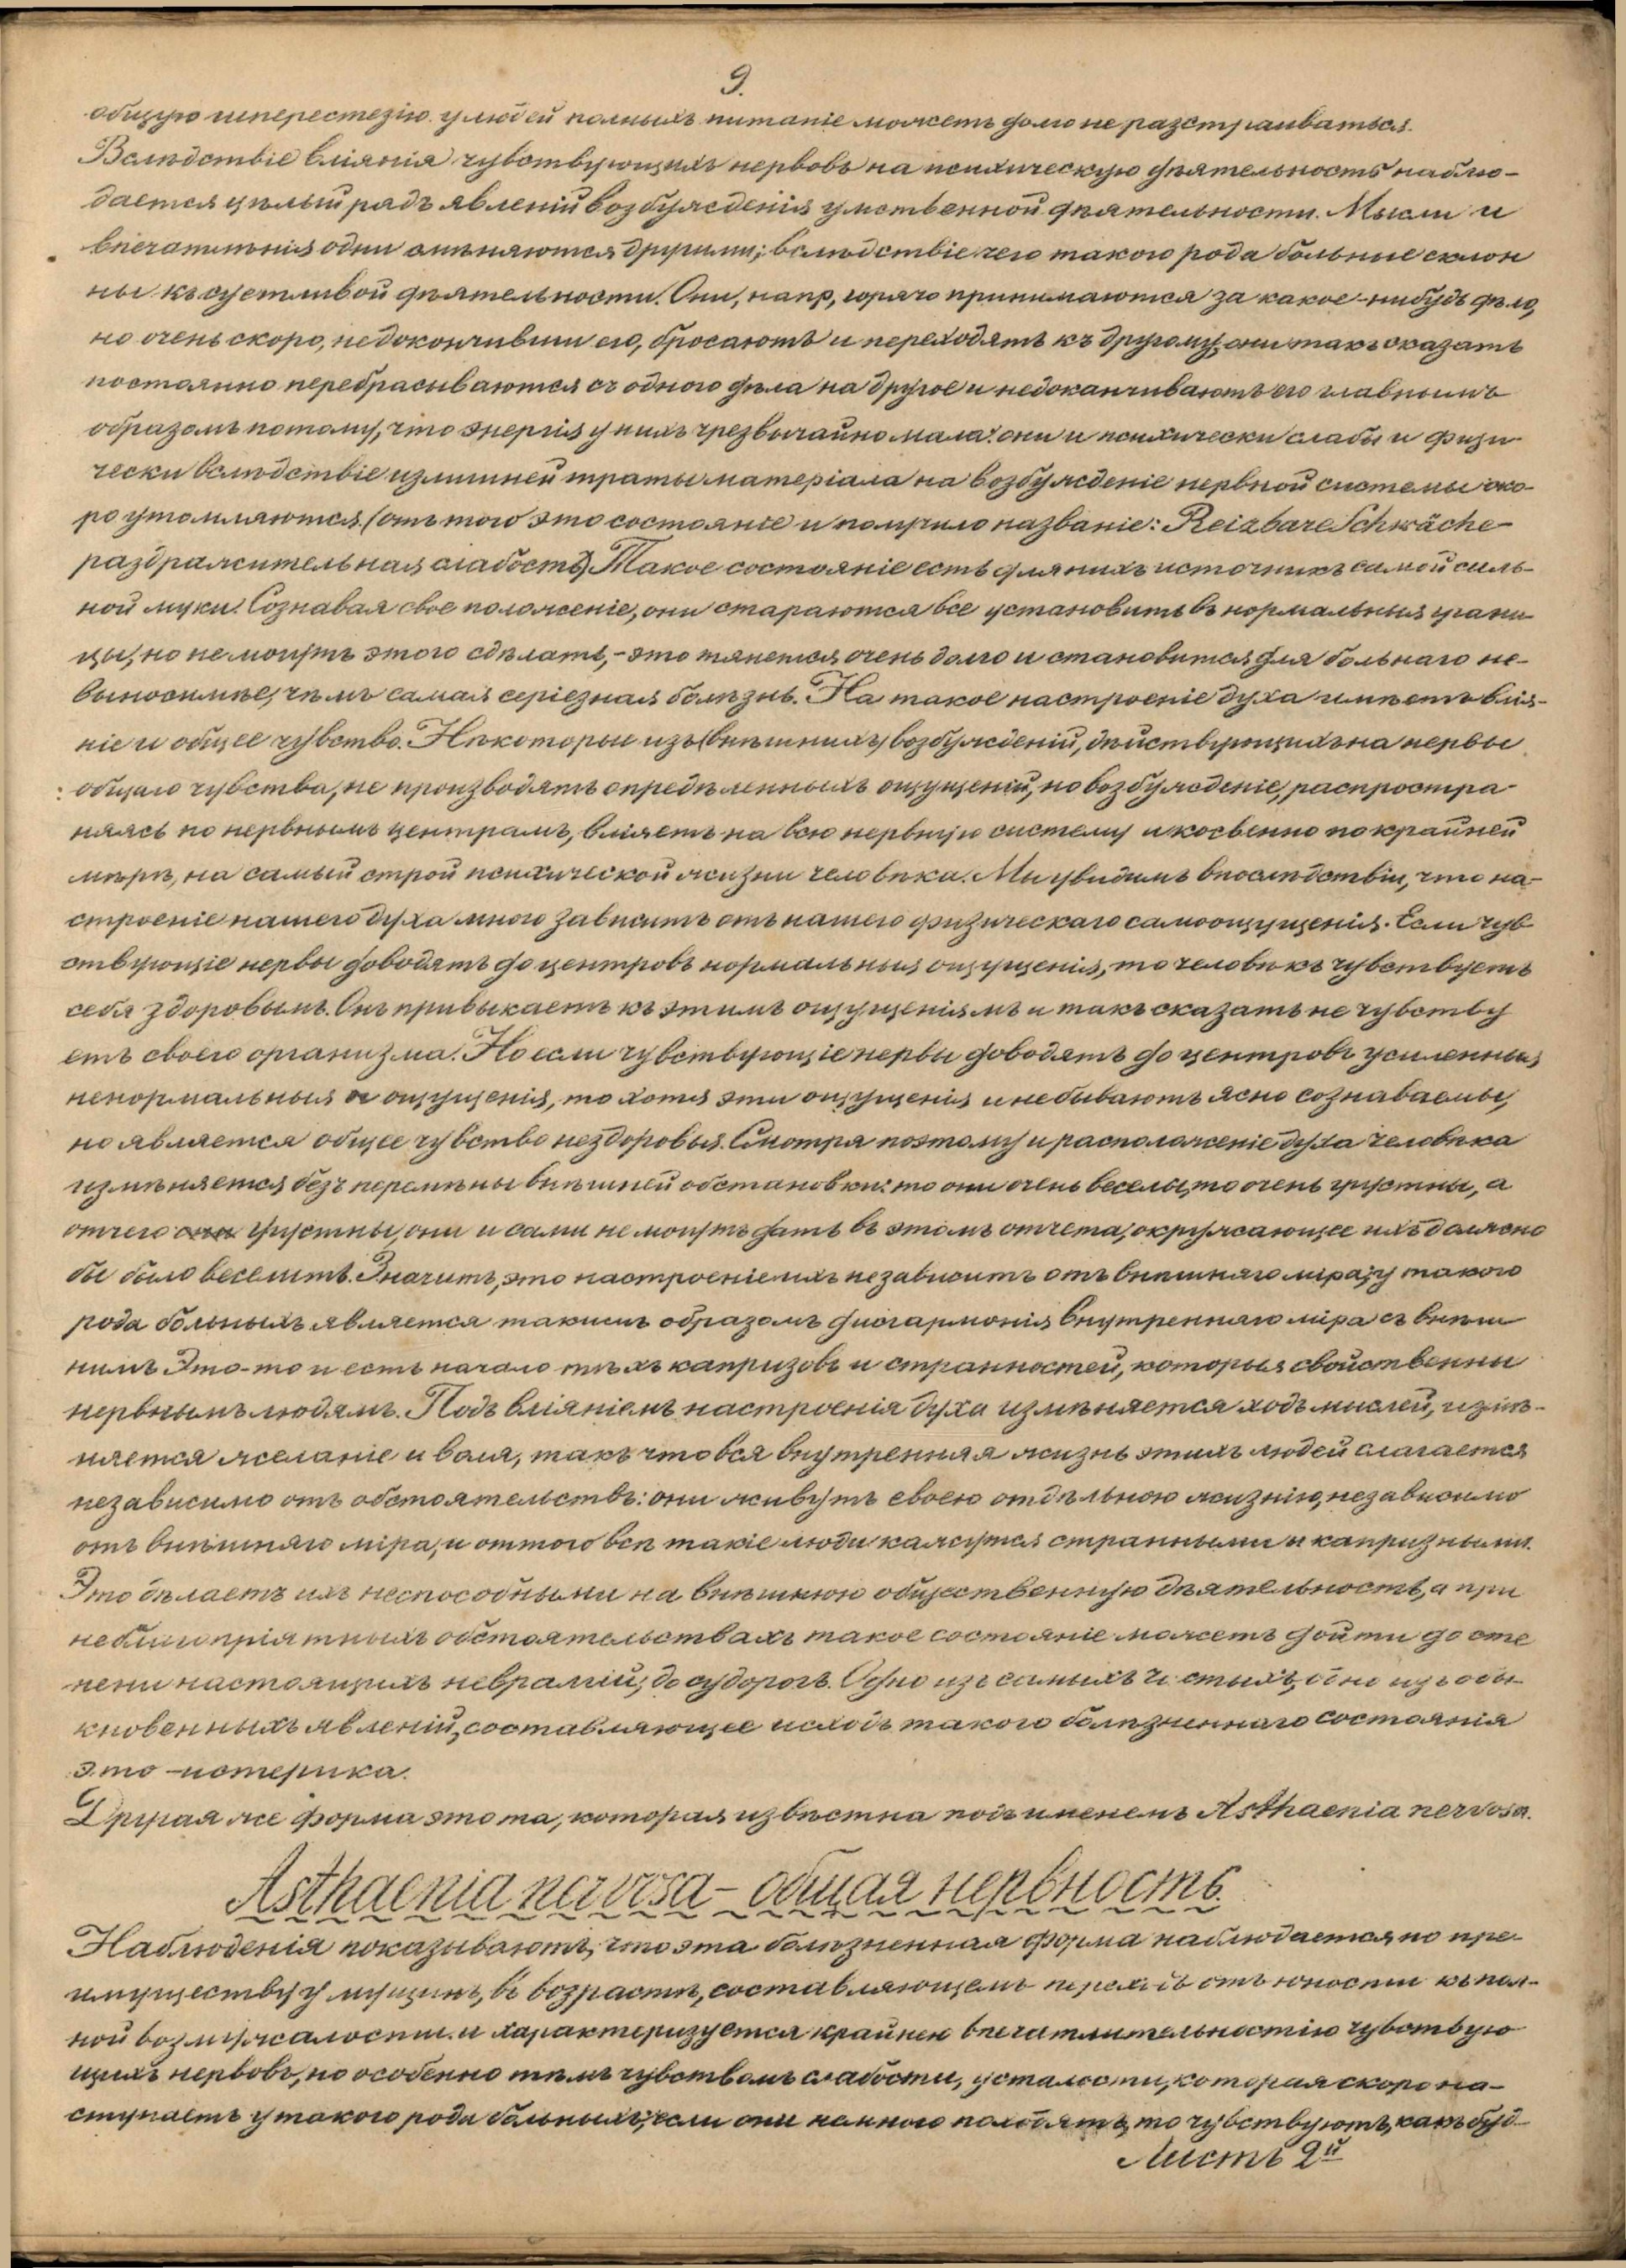 9.
общую гиперестезію. у людей полныхъ питаніе можетъ долго не разстраиваться.
Вслѣдствіе вліянія чувствующихъ нервовъ на психическую дѣятельность наблю-
дается цѣлый рядъ явленій возбужденія умственной дѣятельности. Мысли и
впечатлѣнія одни смѣняются другими; вслѣдствіе чего такого рода больные склон
ны къ суетливой дѣятельности. Они, напр, горячо принимаются за какое-нибудь дѣло,
но очень скоро, недокончивши его, бросаютъ и переходятъ къ другому, они такъ сказать
постоянно перебрасываются съ одного дѣла на другое и недоканчиваютъ его главнымъ
образомъ потому, что энергія у нихъ чрезвычайно мала: они и психически слабы и физи
чески вслѣдствіе излишней траты матеріала на возбужденіе нервной системы ско-
ро утомляются (отъ того это состояніе и получило названіе: Reizbare Schwäche-
раздражительная слабость). Такое состояніе есть для нихъ источникъ самой силь-
ной муки. Сознавая свое положеніе, они стараются все установить въ нормальныя грани
цы, но не могутъ этого сдѣлать,- это тянется очень долго и становится для больнаго не-
выносимѣе, чѣмъ самая серіезная болѣзнь. На такое настроеніе духа имѣетъ влія-
ніе и общее чувство. Нѣкоторыя изъ (внѣшнихъ) возбужденій, дѣйствующихъ на нервы
общаго чувства, не производятъ опредѣленныхъ ощущеній, но возбужденіе, распростра-
няясь по нервнымъ центрамъ, вліяетъ на всю нервную систему и косвенно по крайней
мѣрѣ, на самый строй психической жизни человѣка. Мы увидимъ впослѣдствіи, что на-
строеніе нашего духа много зависитъ отъ нашего физическаго самоощущенія. Если чув
ствующіе нервы доводятъ до центровъ нормальныя ощущенія, то человѣкъ чувствуетъ
себя здоровымъ. Онъ привыкаетъ къ этимъ ощущеніямъ и такъ сказать не чувству
етъ своего организма. Но если чувствующіе нервы доводятъ до центровъ усиленныя
ненормальныя ощущенія, то хотя эти ощущенія и небываютъ ясно сознаваемы,
но является общее чувство нездоровья. Смотря поэтому и расположеніе духа человѣка
измѣняется безъ перемѣны внѣшней обстановки: то они очень веселы, то очень грустны, а
отчего они грустны, они и сами не могутъ дать въ этомъ отчета, окружающее ихъ должно
бы было веселить. Значитъ, это настроеніе ихъ независитъ отъ внѣшняго міра, у такого
рода больныхъ является такимъ образомъ дисгармонія внутренняго міра съ внѣш
нимъ Это-то и есть начало тѣхъ капризовъ и странностей, которыя свойственны
нервнымъ людямъ. Подъ вліяніемъ настроенія духа измѣняется ходъ мыслей, измѣ-
няется желаніе и воля, такъ что вся внутренняя жизнь этихъ людей слагается
независимо отъ обстоятельствъ: они живутъ своею отдѣльною жизнію, независимо
отъ внѣшняго міра, и оттого всѣ такіе люди кажутся странными и капризными.
Это дѣлаетъ ихъ неспособными на внѣшнюю общественную дѣятельность, а при
неблагопріятныхъ обстоятельствахъ такое состояніе можетъ дойти до сте
пени настоящихъ невралгій, до судорогъ. Одно изъ самыхъ чистыхъ, одно изъ обы-
кновенныхъ явленій, составляющее исходъ такого болѣзненнаго состоянія
это - истерика.
Другая же форма это та, которая извѣстна подъ именемъ Asthaenia nervosa.
Asthaenia nervosa - общая нервность.
Наблюденія показываютъ, что эта болѣзненная форма наблюдается по пре-
имуществу у мущинъ, въ возрастѣ, составляющемъ переходъ отъ юности къ пол-
ной возмужалости. и характеризуется крайнею впечатлительностію чувствую
щихъ нервовъ, но особенно тѣмъ чувствомъ слабости, усталости, которая скоро на-
ступаетъ у такого рода больныхъ; если они немного походятъ, то чувствуютъ, какъ буд-
Листъ 2й